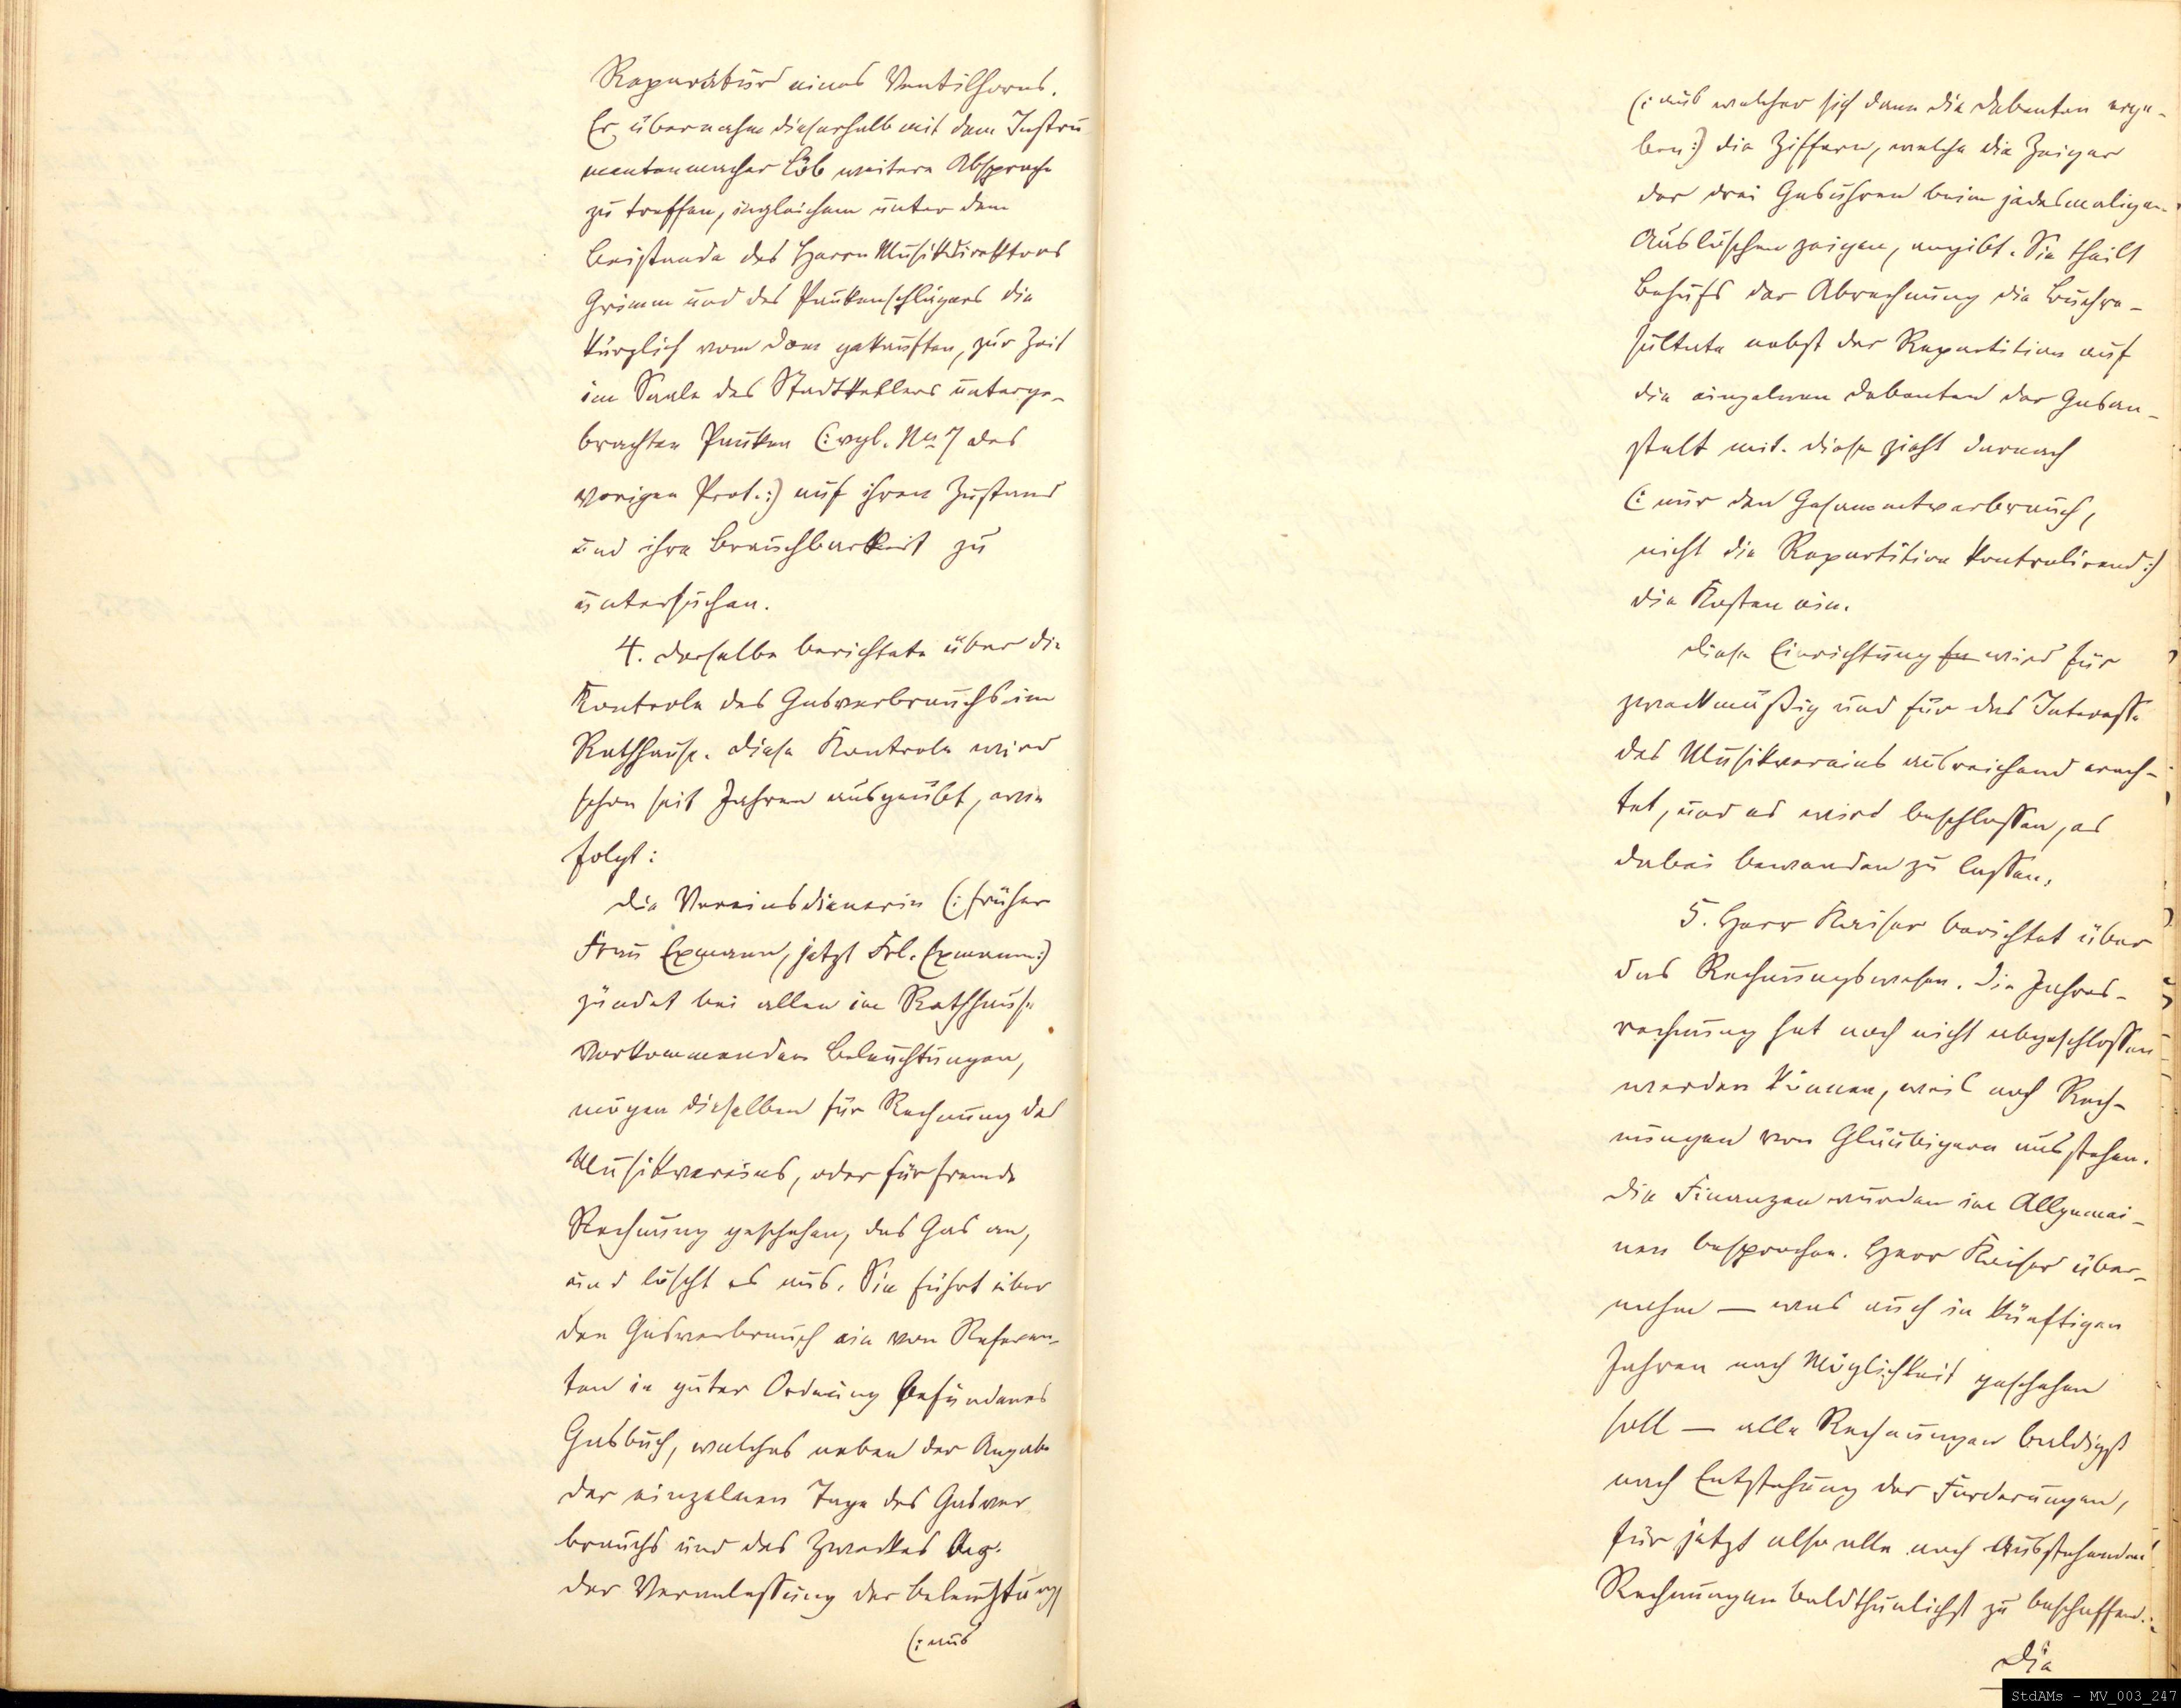 Reparatur eines Ventilhorns.
Er übernahm dieserhalb mit dem Instru-
mentenmacher Löb weitere Absprache
zu treffen, ingleichem unter dem
Beistande des Herrn Musikdirektors
Grimm und des Paukenschlägers die
kürzlich vom Dom gekauften, zur Zeit
im Saale des Stadtkellers unterge-
brachten Pauken (: vgl. No 7 des
vorigen Prot. :) auf ihren Zustand
und ihre Brauchbarkeit zu
untersuchen.
4. Derselbe berichtete über die
Kontrole des Gasverbrauchs im
Rathhause. Diese Kontrole wird
schon seit Jahren ausgeübt, wie
folgt:
Die Vereinsdienerin (: früher
Frau Exmann, jetzt Frl. Exmann :)
zündet bei allen im Rathhause
vorkommenden Beleuchtungen,
mögen dieselben für Rechnung des
Musikvereins, oder für fremde
Rechnung geschehen, das Gas an,
und löscht es aus. Sie führt über
den Gasverbrauch ein von Referen-
ten in guter Ordnung befundenes
Gasbuch, welches neben der Angabe
der einzelnen Tage des Gasver
brauchs und des Zweckes
der Veranlassung der Beleuchtung
(: aus
(: aus welcher sich dann die Debenten erge-
ben :) die Ziffern, welche die Zeiger
der drei Gasuhren beim jedesmaligen
Auslöschen zeigen, angibt. Sie theilt
Behufs der Abrechnung die Buchre-
sultate nebst der Repartition auf
die einzelnen Debenten der Gasan-
stalt mit. Diese zieht darnach
(: nur den Gesammtverbrauch,
nicht die Repartition kontrolirend :)
die Kosten ein.
Diese Einrichtung wird für
zweckmäßig und für das Interesse
des Musikvereins ausreichend erach-
tet, und es wird beschlossen, es
dabei bewenden zu lassen.
5. Herr Kaiser berichtet über
das Rechnungswesen. Die Jahres-
rechnung hat noch nicht abgeschlossen
werden können, weil noch Rech-
nungen von Gläubigern ausstehen.
Die Finanzen wurden im Allgemei-
nen besprochen. Herr Kaiser über-
nahm — was auch in künftigen
Jahren nach Möglichkeit geschehen
soll — alle Rechnungen baldigst
nach Entstehung der Forderungen,
für jetzt also alle noch ausstehenden
Rechnungen baldthunlichst zu beschaffen.
Die
StdAMs - MV_003_247